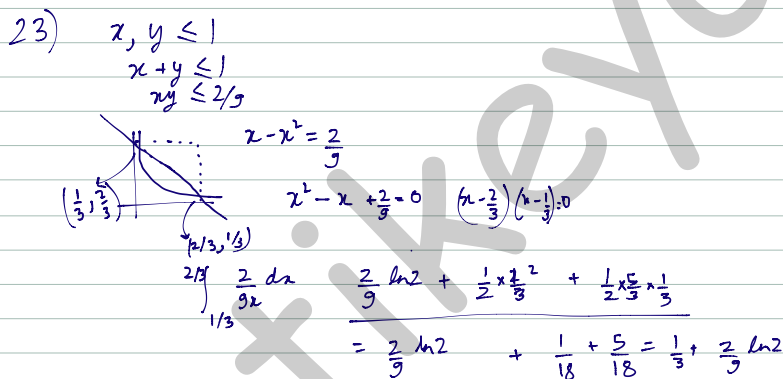 23) x, y ≤ 1
x + y ≤ 1
xy ≤ 2/9
x - x² = 2/9
(1/3, 2/3)
x² - x + 2/9 = 0 (x - 2/3)(x - 1/3) = 0
(2/3, 1/3)
∫_{1/3}^{2/3} 2/9x dx
2/9 ln2 + 1/2 × 1/3² + 1/2 × 5/3 × 1/3
= 2/9 ln2 + 1/18 + 5/18 = 1/3 + 2/9 ln2
tikeya